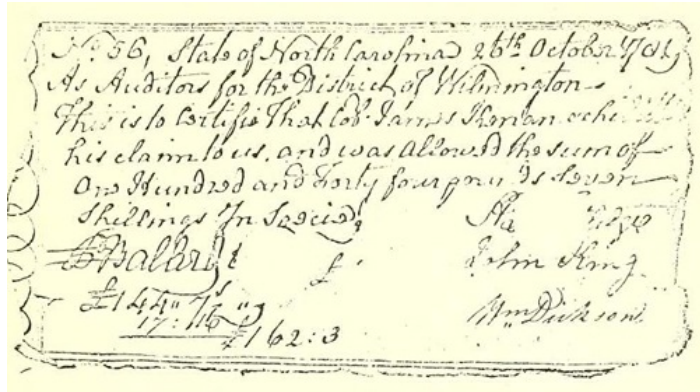 No. 56, State of North Carolina 26th October 1781
As Auditors for the District of Wilmington
This is to Certifie That Col. James Kenan
his claim to us. and was Allowed the sum of
One Hundred and Forty four pounds Seven
Shillings In Specie
John King
£144" 7s
17:16
£162:3
Wm Dickson